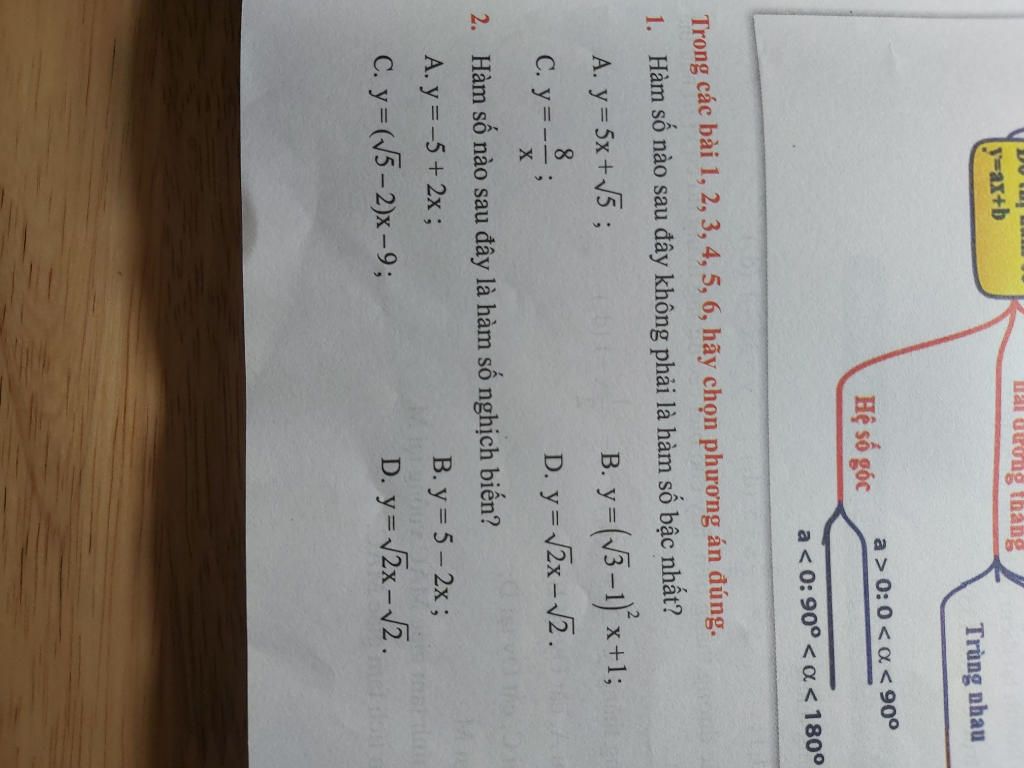 y=ax+b
Hai đường thẳng
Trùng nhau
Hệ số góc
a > 0: 0 < α < 90°
a < 0: 90° < α < 180°
Trong các bài 1, 2, 3, 4, 5, 6, hãy chọn phương án đúng.
1. Hàm số nào sau đây không phải là hàm số bậc nhất?
A. y = 5x + √5 ; B. y = (√3 − 1)² x + 1 ;
C. y = − 8/x ; D. y = √2x − √2 .
2. Hàm số nào sau đây là hàm số nghịch biến?
A. y = −5 + 2x ; B. y = 5 − 2x ;
C. y = (√5 − 2)x − 9 ; D. y = √2x − √2 .